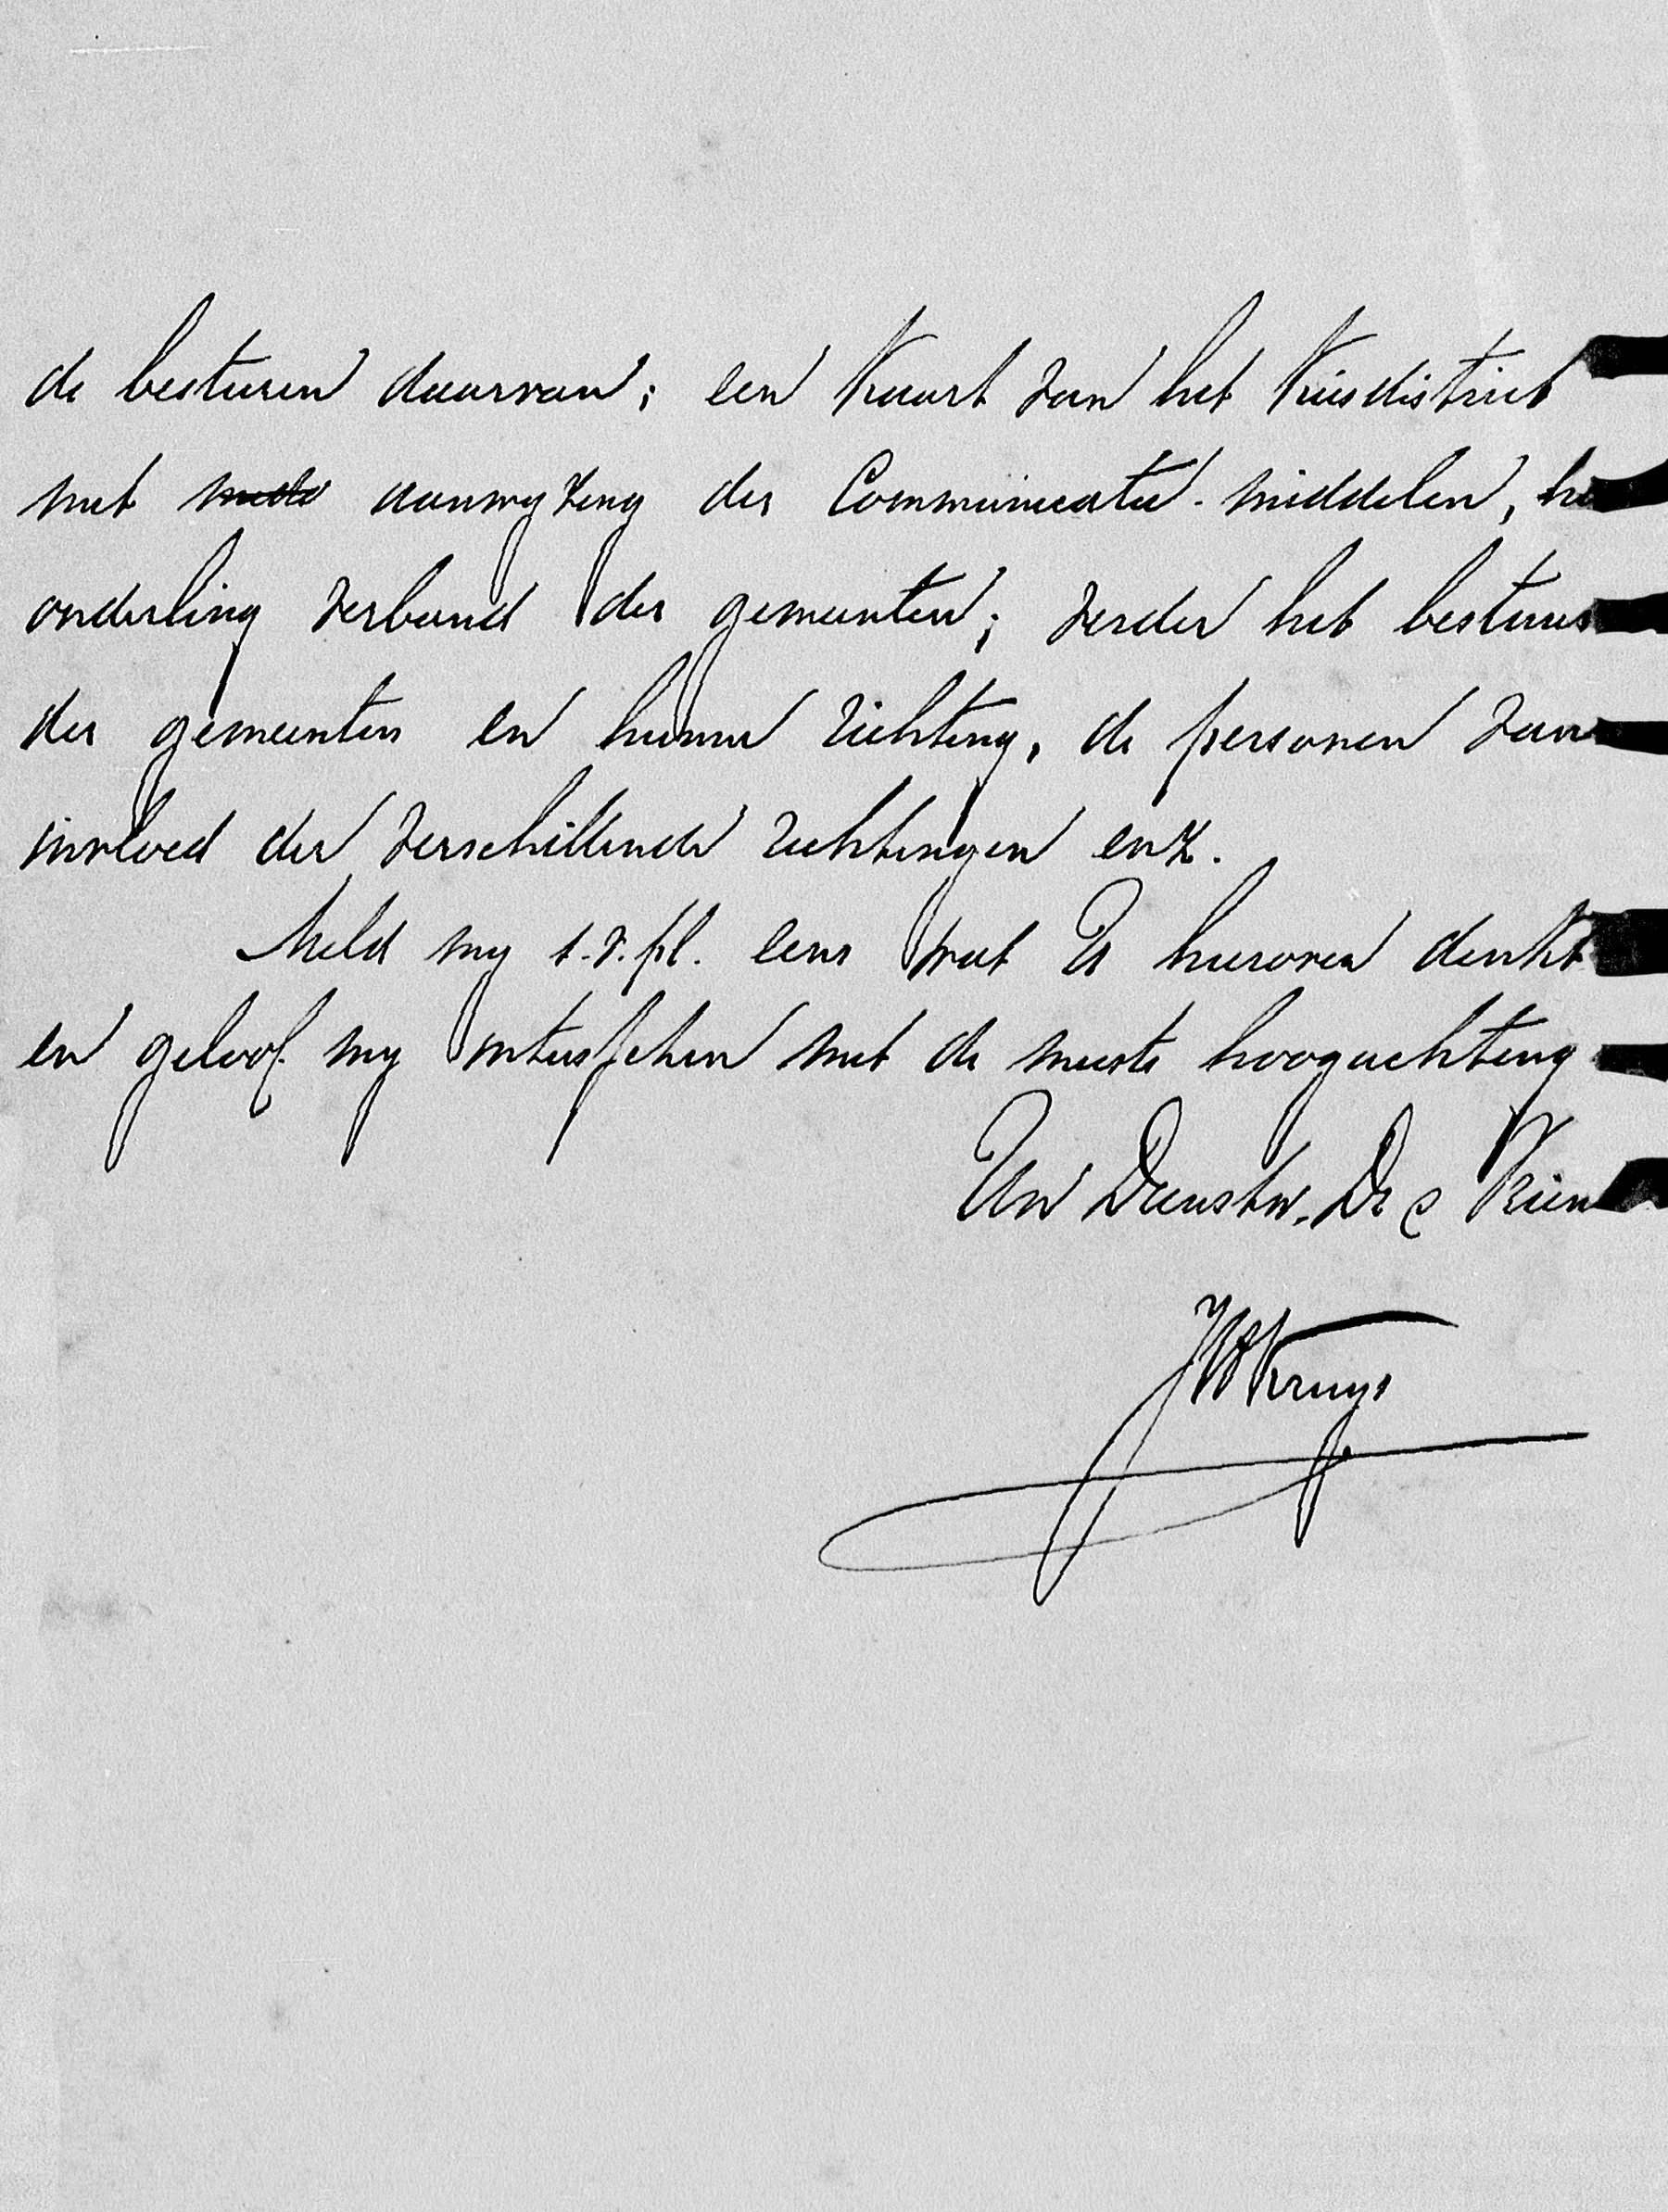 de besturen daarvan; een kaart van het Kiesdistrict
met aanwyzing der Communicatie-middelen, he
onderling verband der gemeenten; verder het bestuur
der gemeenten en hunne richting, de personen van
invloed der verschillende richtingen enz.
Meld my s.v.pl. eens wat U hierover denkt
en geloof my intusschen met de meeste hoogachting
Uw Dienstw. Dr & Vrien
JW Kruys